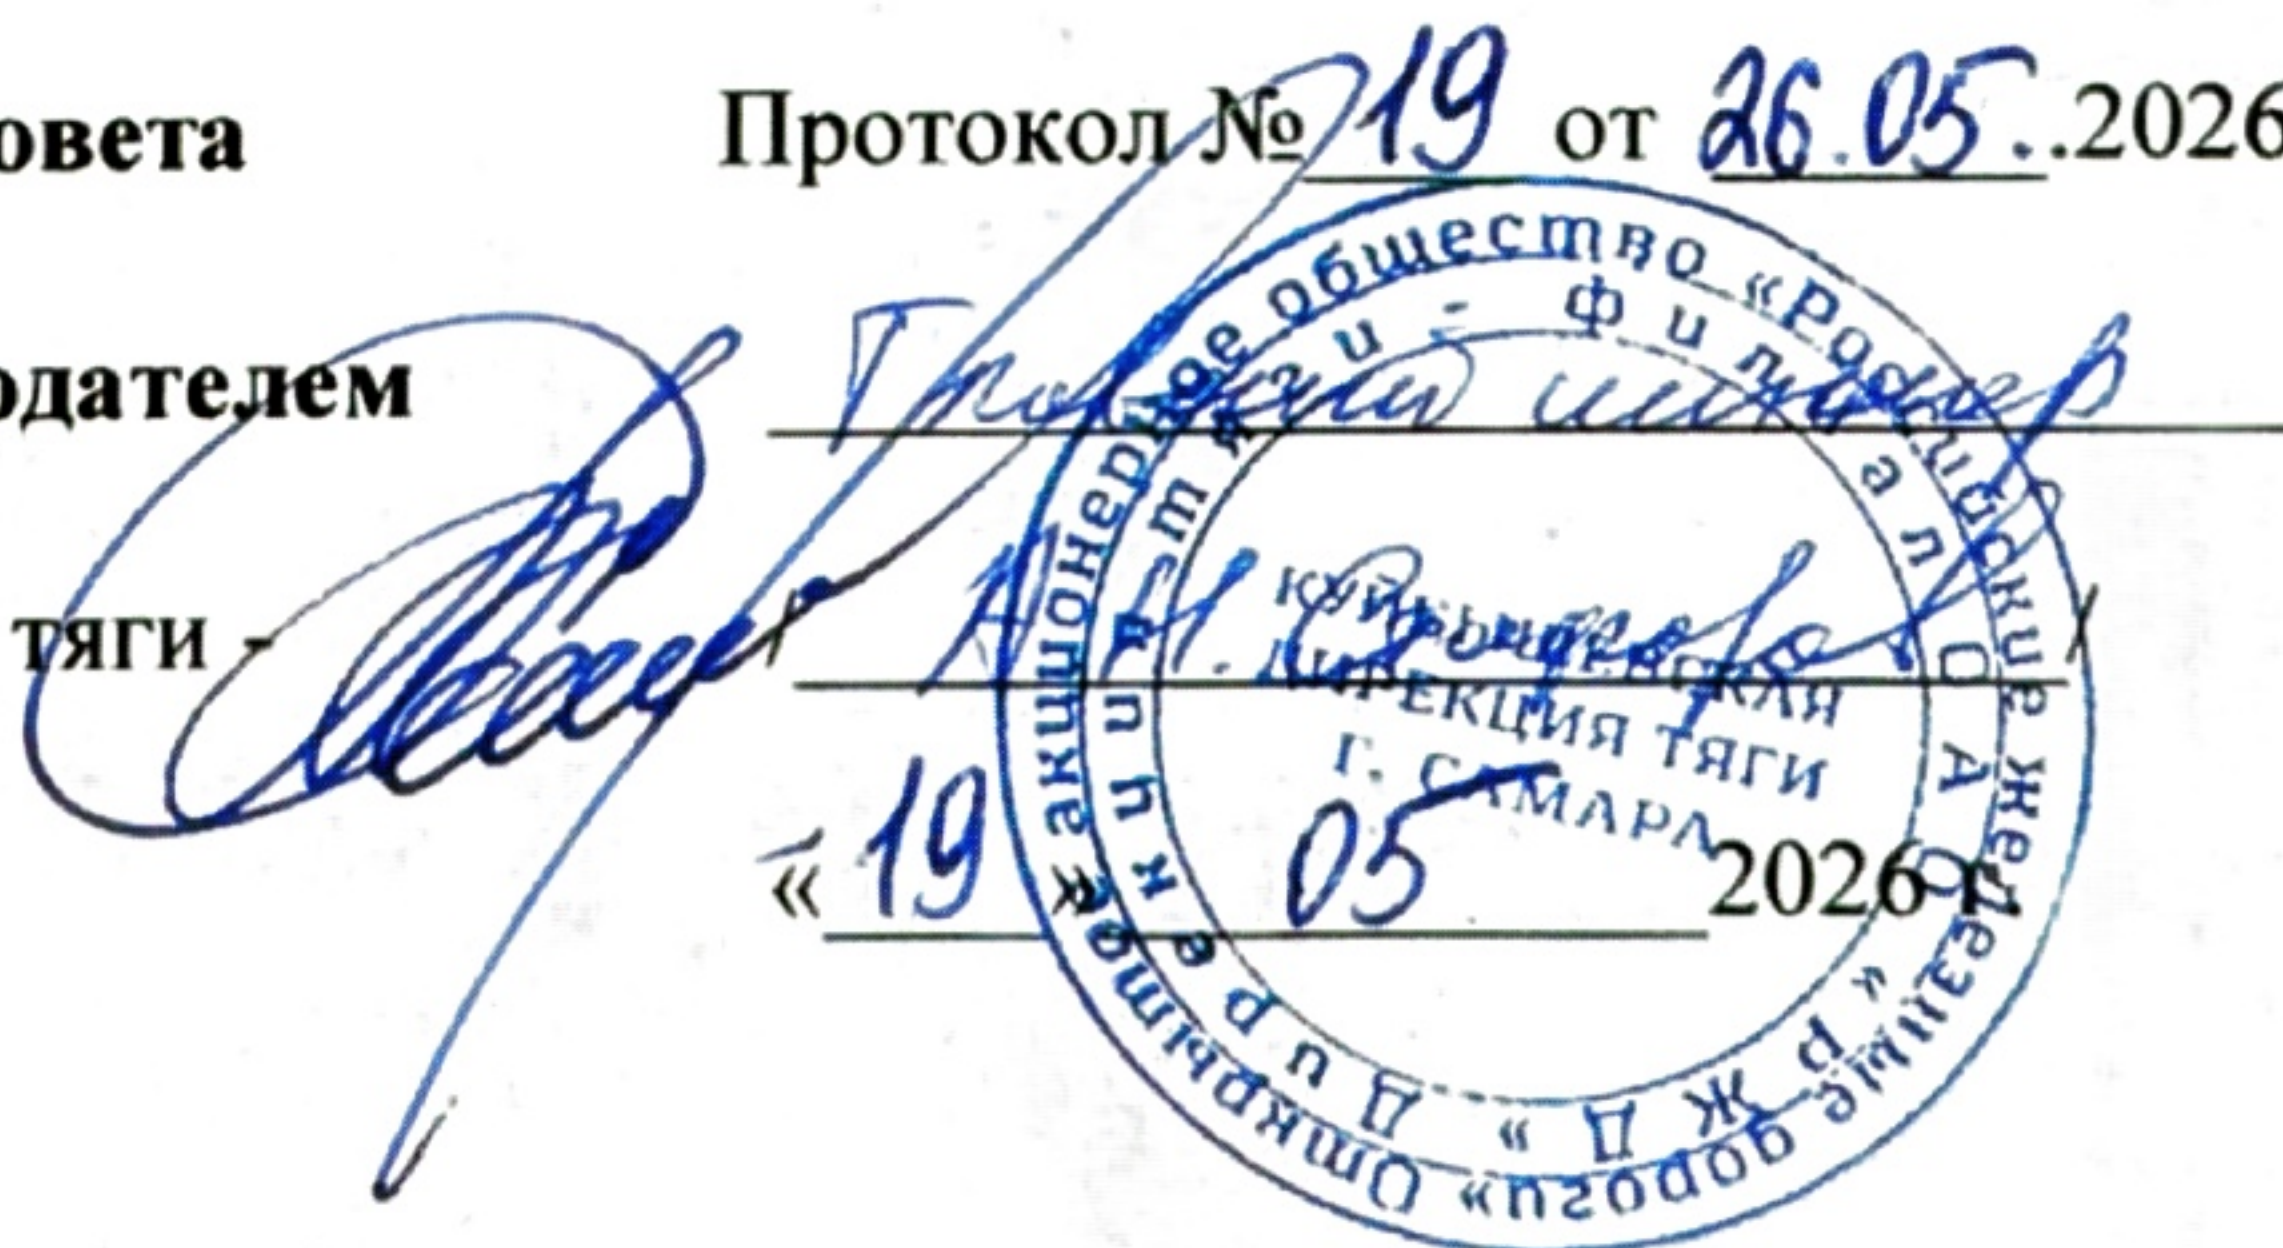 овета Протокол № 19 от 26.05..2026
одателем Главный инженер
тяги -
«19 » 05 2026 г.
Открытое акционерное общество «Российские железные дороги»
Дирекция тяги - филиал ОАО «РЖД»
КУЙБЫШЕВСКАЯ
ДИРЕКЦИЯ ТЯГИ
Г. САМАРА